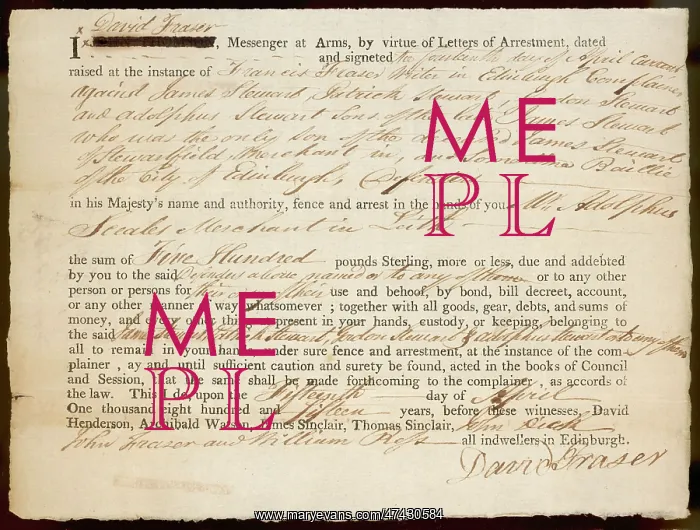 David Fraser
I , Messenger at Arms, by virtue of Letters of Arrestment, dated
and signeted the fourteenth day of April Current
raised at the instance of Francis Fraser Writer in Edinburgh Complainer
against James Stewart Patrick Stewart, Gordon Stewart
and Adolphus Stewart Sons of the late James Stewart
who was the only son of the James Stewart
of Stewartfield, Merchant in, and Baillie
of the City of Edinburgh,
in his Majesty's name and authority, fence and arrest in the hands of you Mr. Adolphus
Scales Merchant in Leith
the sum of Five Hundred pounds Sterling, more or less, due and addebted
by you to the said above named or to any of them or to any other
person or persons for their use and behoof, by bond, bill decreet, account,
or any other manner of way whatsomever ; together with all goods, gear, debts, and sums of
money, and every other thing present in your hands, custody, or keeping, belonging to
the said Stewart, Gordon Stewart & Adolphus Stewart or to any of them
all to remain in your hands under sure fence and arrestment, at the instance of the com-
plainer , ay and until sufficient caution and surety be found, acted in the books of Council
and Session, that the same shall be made forthcoming to the complainer , as accords of
the law. This I do upon the fifteenth day of April
One thousand eight hundred and fifteen years, before these witnesses, David
Henderson, Archibald Watson, James Sinclair, Thomas Sinclair,
John Fraser and William Ross all indwellers in Edinburgh.
David Fraser
ME
PL
ME
PL
www.maryevans.com/47430584